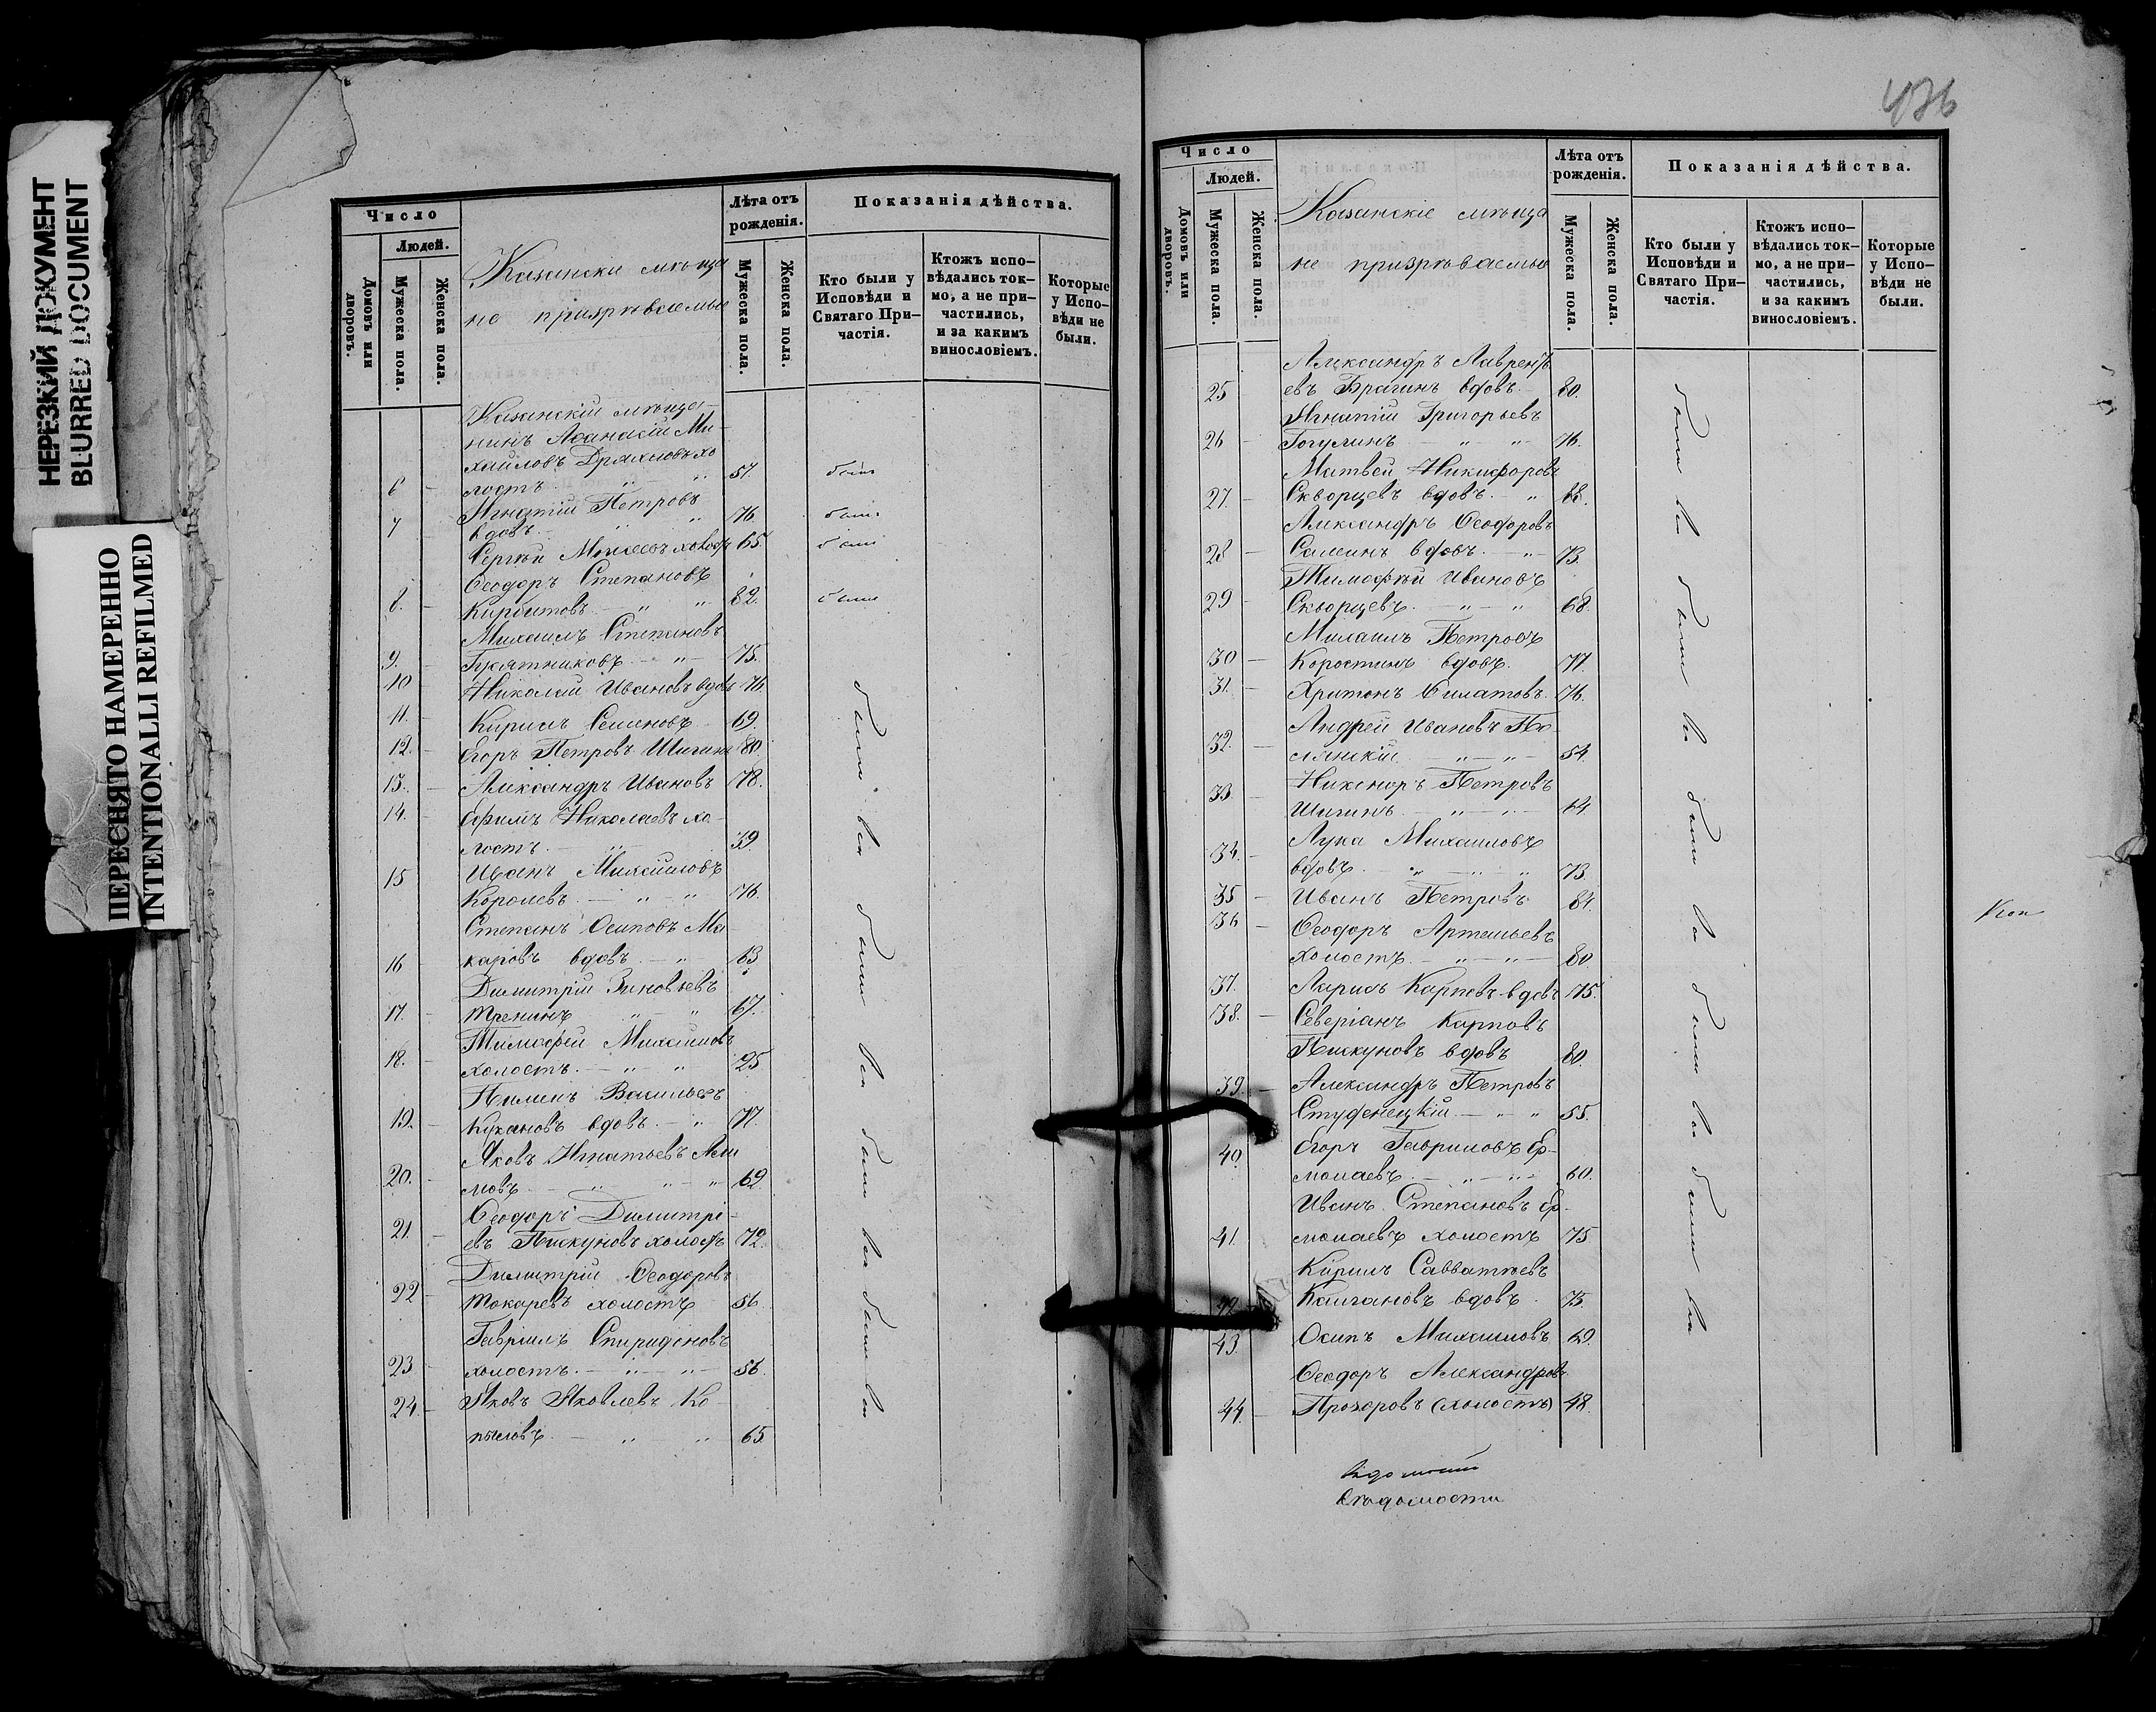 НЕРЕЗКИЙ ДОКУМЕНТ
BLURRED DOCUMENT
ПЕРЕСНЯТО НАМЕРЕННО
INTENTIONALLI REFILMED
Число
Людей.
Домовъ или дворовъ.
Мужеска пола.
Женска пола.
Казански мѣща
не призрѣваемые
Лѣта отъ рожденія.
Мужеска пола.
Женска пола.
Показанія дѣйства.
Кто были у Исповѣди и Святаго Причастія.
Ктожъ исповѣдались токмо, а не причастились, и за какимъ винословіемъ.
Которые у Исповѣди не были.
Казанскій мѣща-
нинъ Аѳанасій Ми-
хайловъ Дряхловъ хо
6 лостъ 57. былъ
Игнатій Петровъ
7 вдовъ 76. былъ
Сергѣй Моисеевъ холостъ 65. былъ
Ѳеодоръ Степановъ
8. Кирбитовъ 82. былъ
Михаилъ Степановъ
9. Тукятниковъ 75.
10 Николай Ивановъ вдовъ 76.
11. Кирилъ Семеновъ 69.
12. Егоръ Петровъ Шигинъ 80
13. Александръ Ивановъ 78.
14. Ефимъ Николаевъ хо-
лостъ 39.
15 Иванъ Михайловъ
Королевъ 76.
Степанъ Осиповъ Ма-
16 каровъ вдовъ 63
Димитрій Зиновьевъ
17. Тренинъ 67.
Тимоѳей Михайловъ
18. холостъ 25
Пименъ Васильевъ
19. Кухановъ вдовъ 77.
Яковъ Игнатьевъ Али
20. мовъ 69
Ѳеодоръ Димитрі-
21. евъ Пискуновъ холостъ 72.
Димитрій Ѳеодоровъ
22 Токаревъ холостъ 56
Гавріилъ Спиридоновъ
23 холостъ 56.
24. Яковъ Яковлевъ Ко-
пыловъ 65
476
Число
Людей.
Домовъ или дворовъ.
Мужеска пола.
Женска пола.
Казанскіе мѣща
не призрѣваемые
Лѣта отъ рожденія.
Мужеска пола.
Женска пола.
Показанія дѣйства.
Кто были у Исповѣди и Святаго Причастія.
Ктожъ исповѣдались токмо, а не причастились, и за какимъ винословіемъ.
Которые у Исповѣди не были.
Александръ Лаврентѣ
25 евъ Брагинъ вдовъ 80.
Игнатій Григорьевъ
26 Гогулинъ 76.
Матвей Никифоровъ
27. Скворцевъ вдовъ 88.
Александръ Ѳеодоровъ
28 Саминъ вдовъ 73.
Тимоѳѣй Ивановъ
29 Скворцевъ 68.
Михаилъ Петровъ
30 Коростинъ вдовъ 77.
31. Харитонъ Филатовъ 76.
Андрей Ивановъ По-
32. лянскій 54.
33 Никаноръ Петровъ
Шигинъ 64.
34. Лука Михаиловъ
вдовъ 73.
35 Иванъ Петровъ 84.
36 Ѳеодоръ Артемьевъ
холостъ 80.
37. Ларіонъ Карповъ вдовъ 75.
38. Северіанъ Карповъ
Пискуновъ вдовъ 80.
39. Александръ Петровъ
Студенецкій 55.
40. Егоръ Гавриловъ Ер-
молаевъ 60.
Иванъ Степановъ Ер-
41. молаевъ холостъ 75
Кирилъ Савватѣевъ
42 Калгановъ вдовъ 75.
43. Осипъ Михаиловъ 69.
Ѳеодоръ Александровъ
44. Прохоровъ (холостъ) 48.